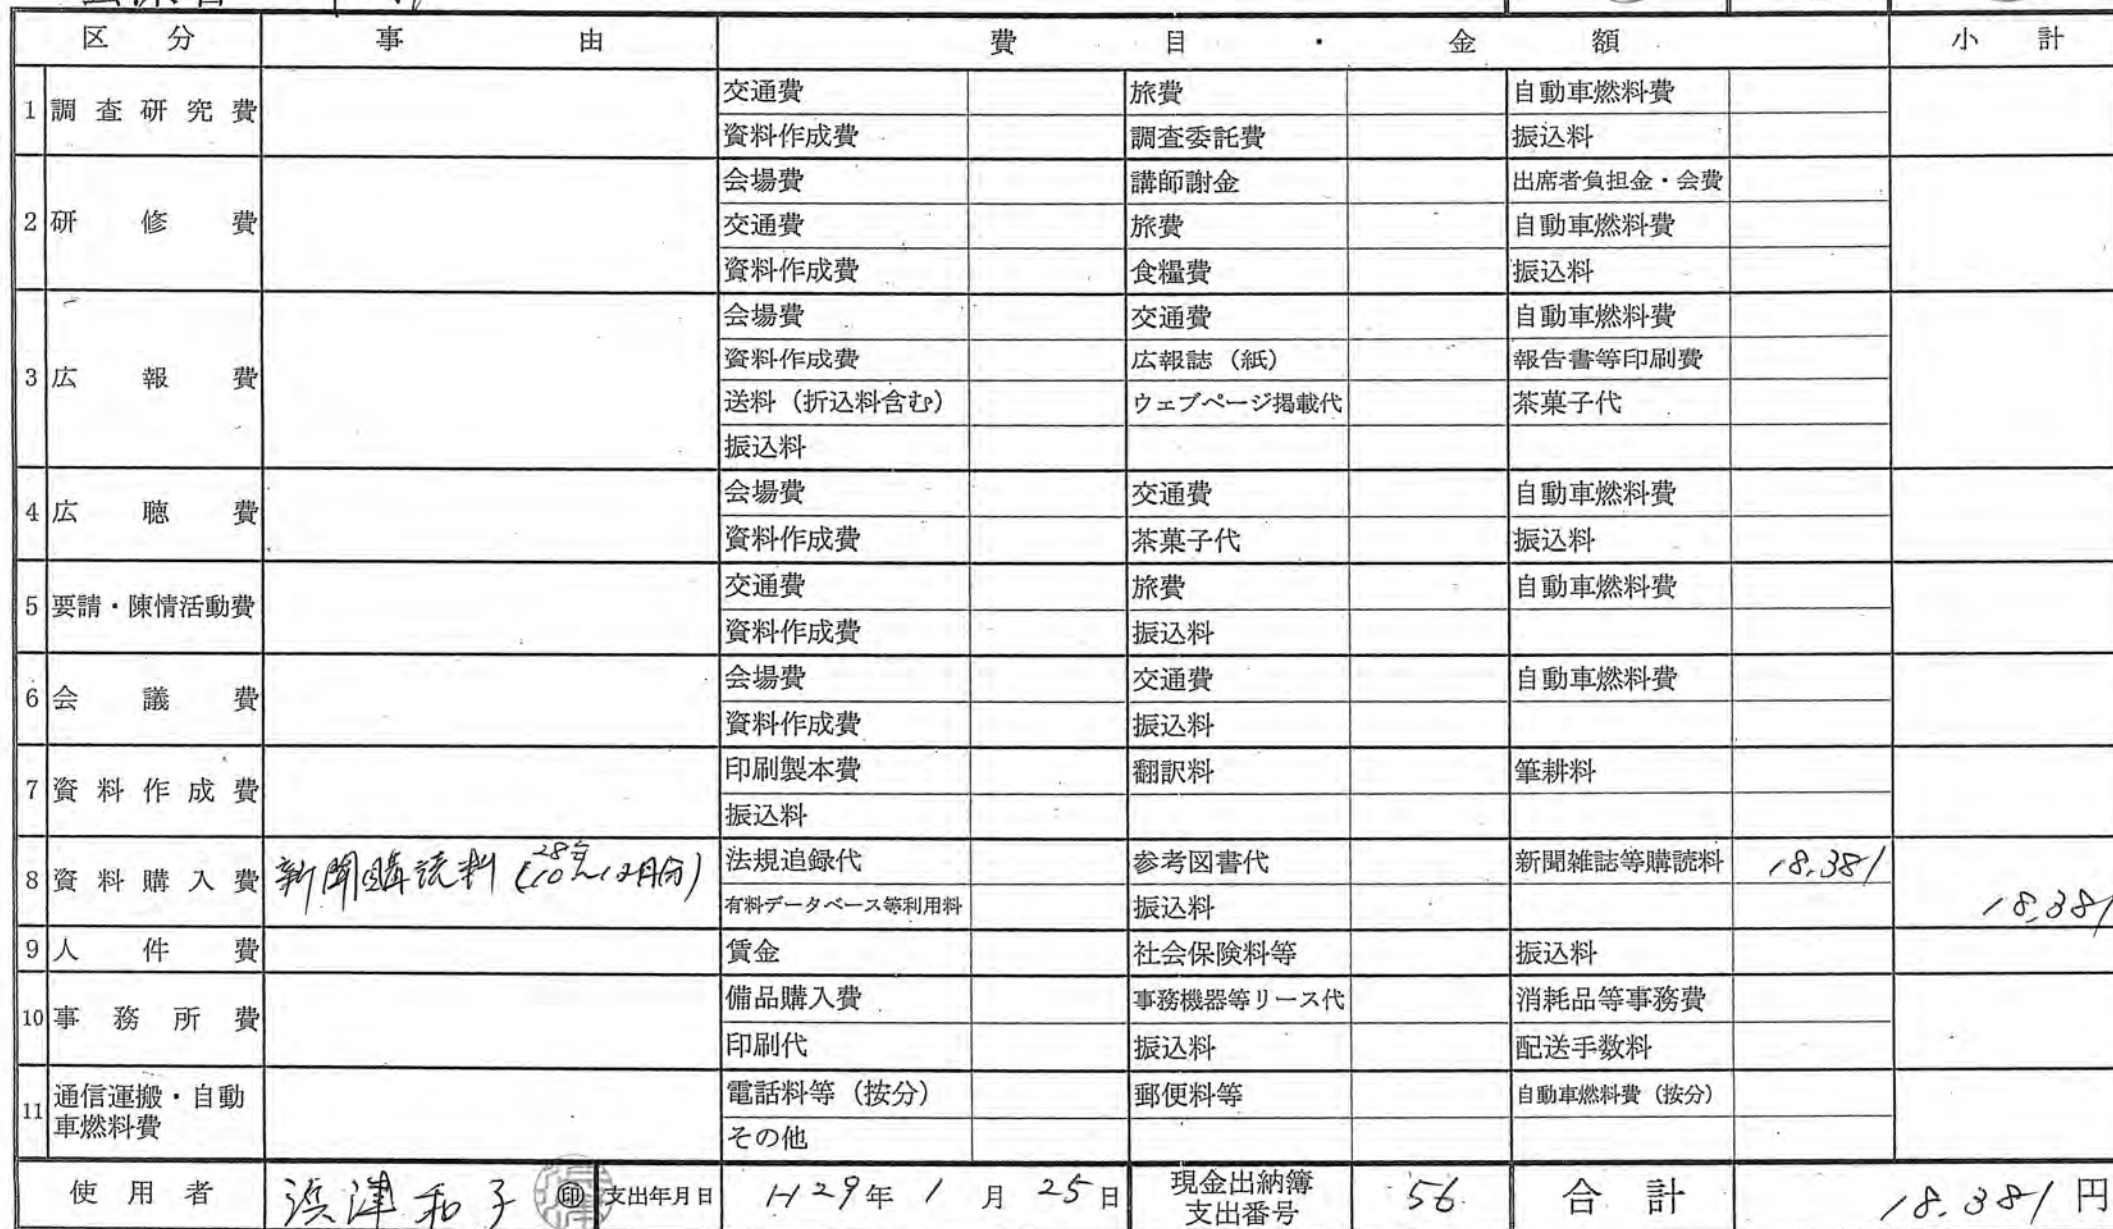 区分 事由 費目・金額 小計
1 調査研究費 交通費 旅費 自動車燃料費
資料作成費 調査委託費 振込料
2 研修費 会場費 講師謝金 出席者負担金・会費
交通費 旅費 自動車燃料費
資料作成費 食糧費 振込料
3 広報費 会場費 交通費 自動車燃料費
資料作成費 広報誌（紙） 報告書等印刷費
送料（折込料含む） ウェブページ掲載代 茶菓子代
振込料
4 広聴費 会場費 交通費 自動車燃料費
資料作成費 茶菓子代 振込料
5 要請・陳情活動費 交通費 旅費 自動車燃料費
資料作成費 振込料
6 会議費 会場費 交通費 自動車燃料費
資料作成費 振込料
7 資料作成費 印刷製本費 翻訳料 筆耕料
振込料
8 資料購入費 新聞購読料 (28年10〜12月分) 法規追録代 参考図書代 新聞雑誌等購読料 18,381
有料データベース等利用料 振込料 18,381
9 人件費 賃金 社会保険料等 振込料
10 事務所費 備品購入費 事務機器等リース代 消耗品等事務費
印刷代 振込料 配送手数料
11 通信運搬・自動車燃料費 電話料等（按分） 郵便料等 自動車燃料費（按分）
その他
使用者 浜津和子 ㊞ 支出年月日 H29年1月25日 現金出納簿支出番号 56 合計 18,381円